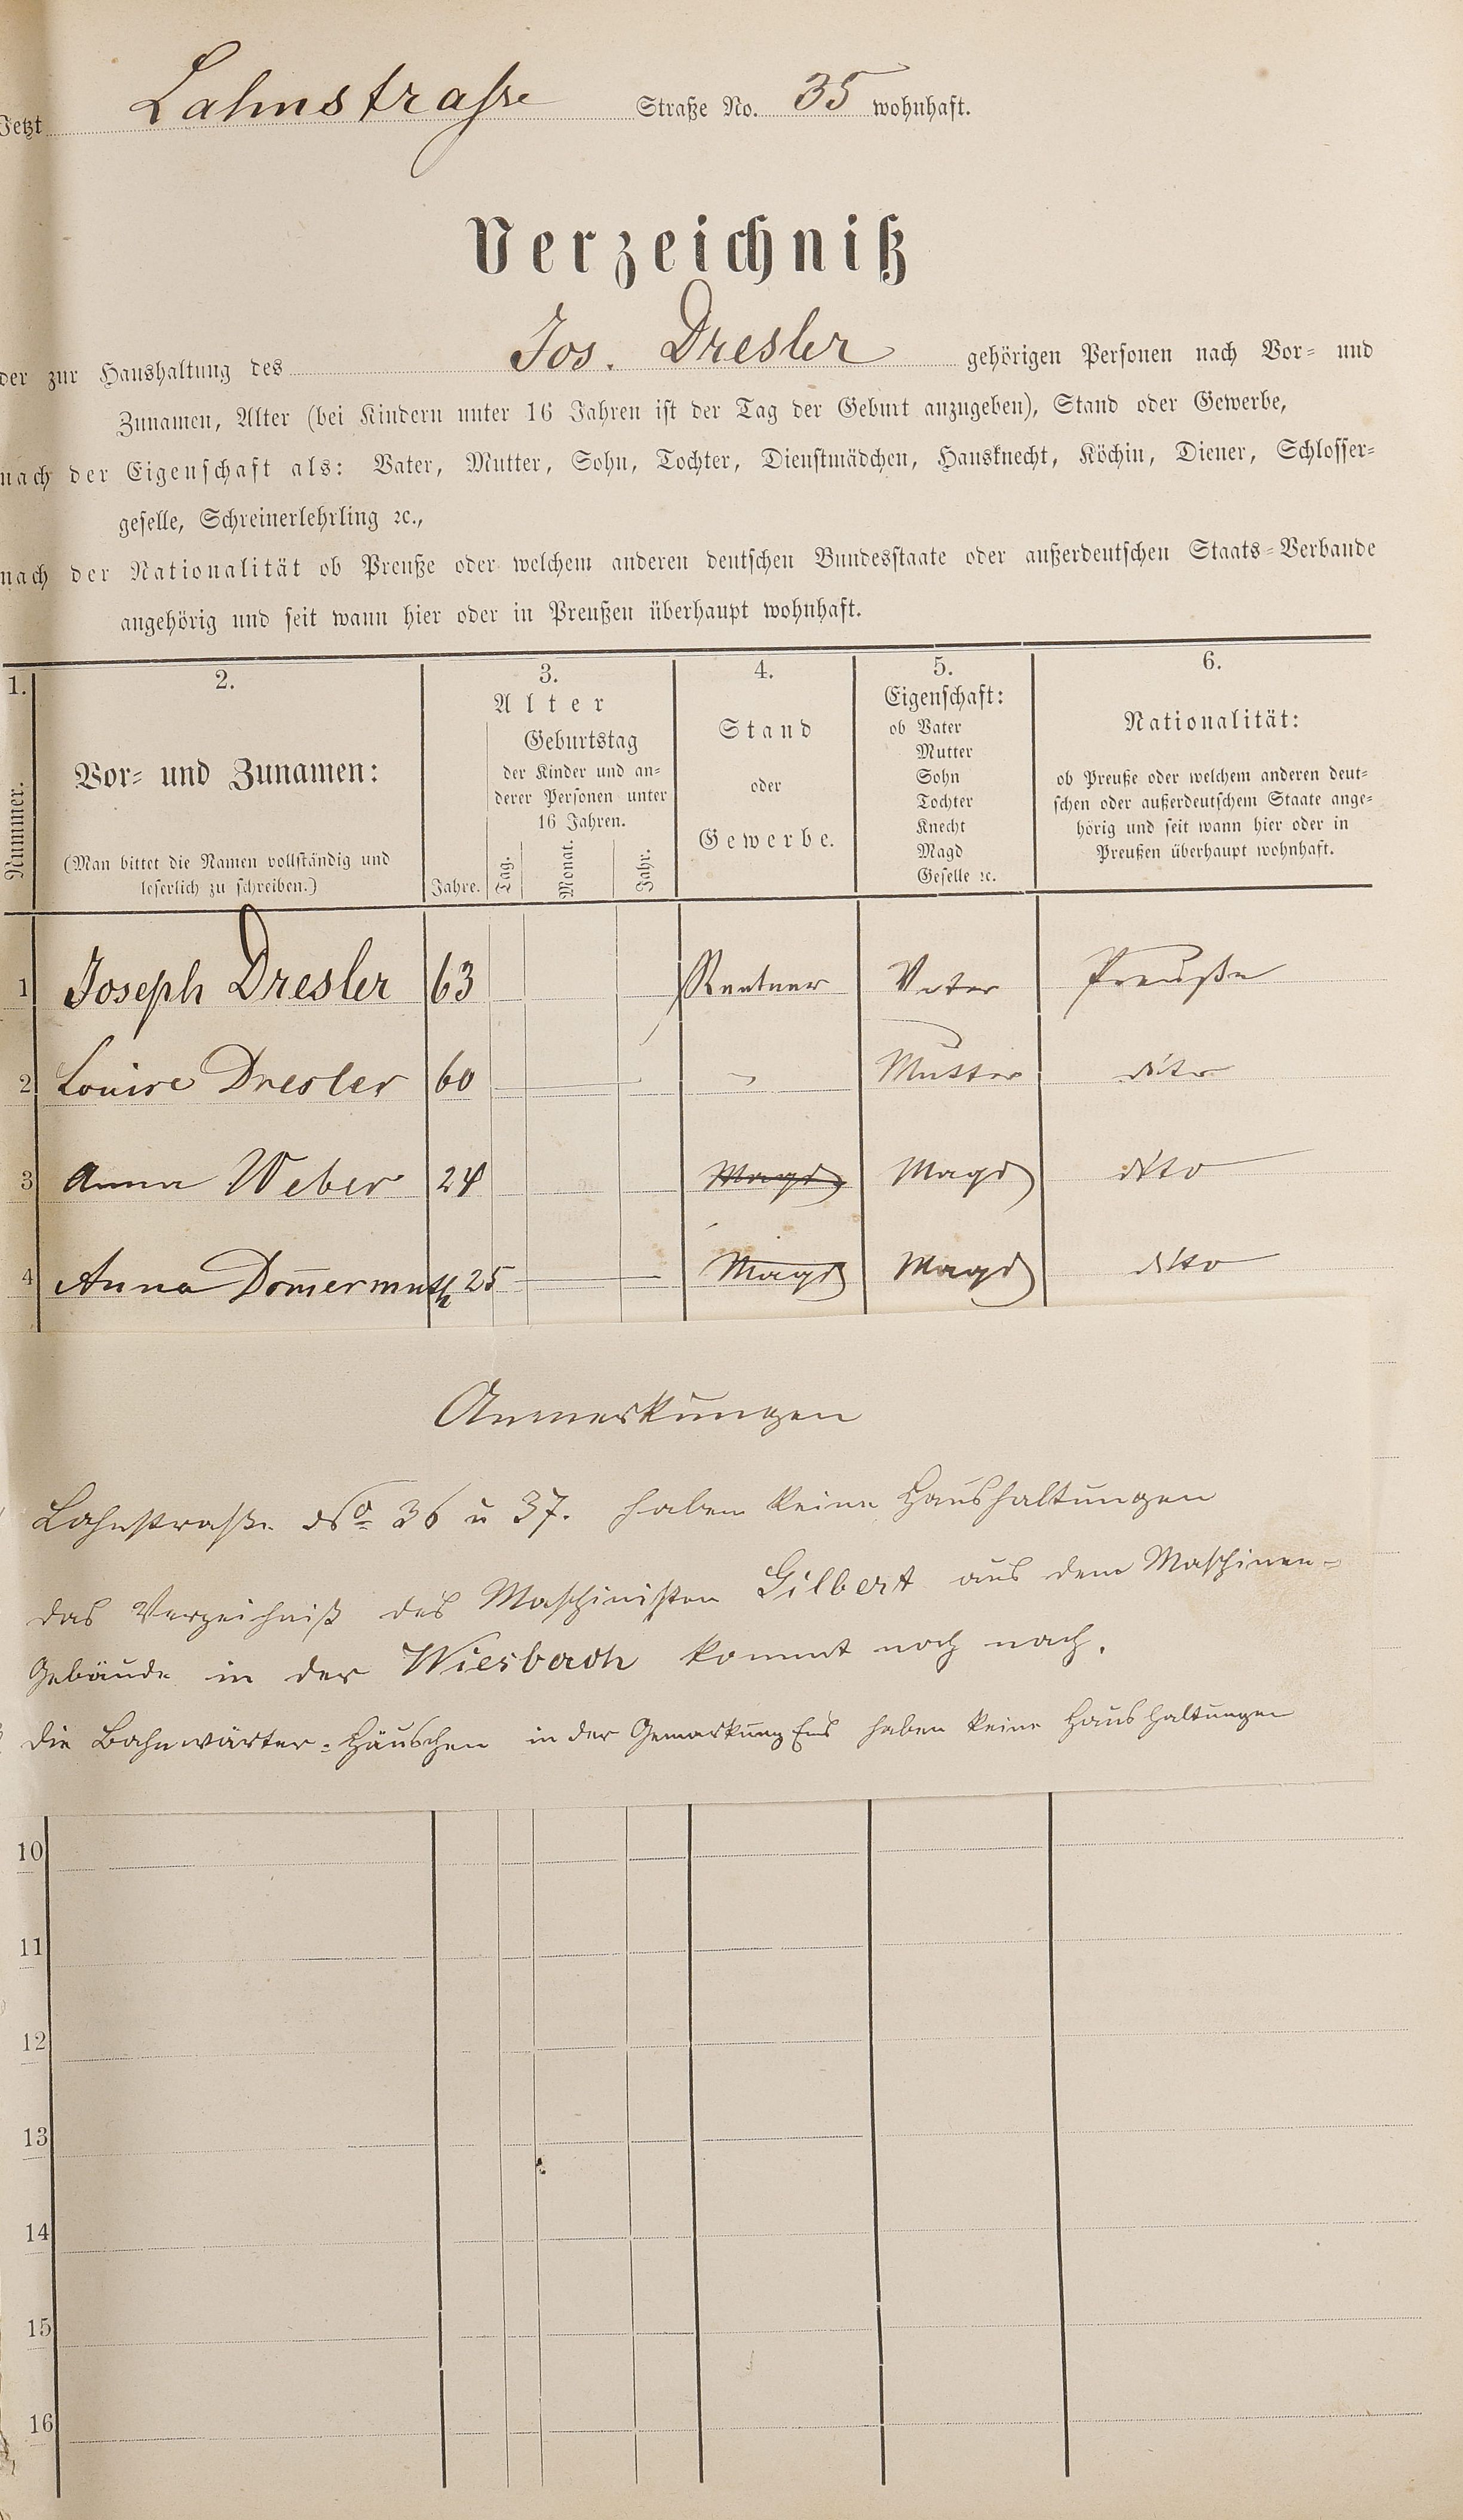 Jetzt Lahnstraße Straße No. 35 wohnhaft.
Verzeichniß
der zur Haushaltung des Jos. Dresler gehörigen Personen nach Vor- und
Zunamen, Alter (bei Kindern unter 16 Jahren ist der Tag der Geburt anzugeben), Stand oder Gewerbe,
nach der Eigenschaft als: Vater, Mutter, Sohn, Tochter, Dienstmädchen, Hausknecht, Köchin, Diener, Schlosser-
geselle, Schreinerlehrling ꝛc.,
nach der Nationalität ob Preuße oder welchem anderen deutschen Bundesstaate oder außerdeutschen Staats-Verbande
angehörig und seit wann hier oder in Preußen überhaupt wohnhaft.
1.
Nummer.
2.
Vor- und Zunamen:
(Man bittet die Namen vollständig und
leserlich zu schreiben.)
3.
Alter
Jahre.
Geburtstag
der Kinder und an-
derer Personen unter
16 Jahren.
Tag. Monat. Jahr.
4.
Stand
oder
Gewerbe.
5.
Eigenschaft:
ob Vater
Mutter
Sohn
Tochter
Knecht
Magd
Geselle ꝛc.
6.
Nationalität:
ob Preuße oder welchem anderen deut-
schen oder außerdeutschem Staate ange-
hörig und seit wann hier oder in
Preußen überhaupt wohnhaft.
1 Joseph Dresler 63 Rentner Vater Preuße
2 Louise Dresler 60 Mutter dito
3 Anna Weber 24 Magd Magd ditto
4 Anna Dom̄ermuth 25 Magd Magd ditto
Anmerkungen
Lahnstraße No 36 u 37. haben keine Haushaltungen
das Verzeichniß des Maschinisten Gilbert aus dem Maschinen-
Gebäude in der Wiesbach kommt noch nach.
Die Bahnwärter-Häuschen in der Gemarkung Ems haben keine Haushaltungen
10
11
12
13
14
15
16